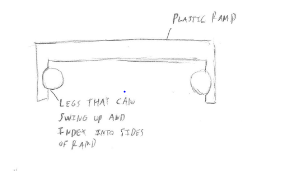 PLASTIC RAMP
LEGS THAT CAN
SWING UP AND
INDEX INTO SIDES
OF RAMP